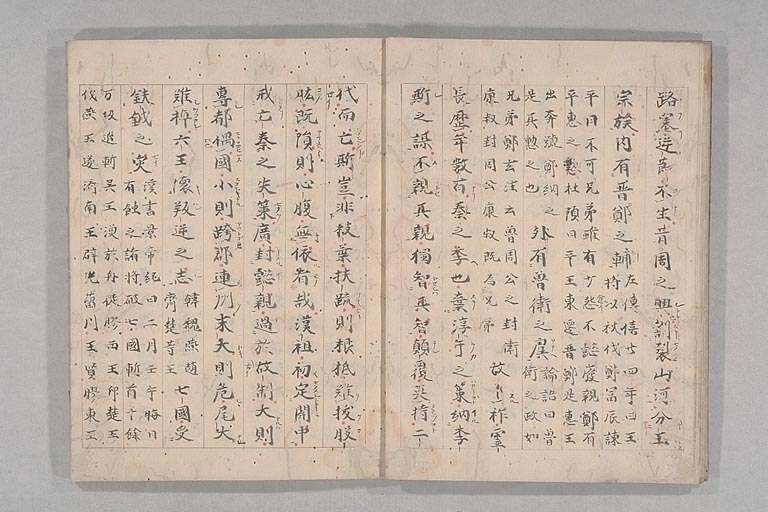 路塞逆節不生昔周之興割裂山河分王
宗族内有晋鄭之輔
左傳僖廿四年曰王
将以狄伐鄭富辰諫
平曰不可兄弟雖有小忿不懿廢親鄭有
平惠之勲杜預曰平王東遷晋鄭是惠王
出奔虢鄭納之
是其勲之也
外有魯衛之虞
論語曰魯
衛之政如
兄弟鄭玄注云魯周公之封衛
康叔封周公康叔既為兄弟
故卜祚霊
長歴年数百秦之季也棄淳于之策納李
斯之謀不親其親獨智其智顛覆莫恃二
代而亡斯豈非枝葉扶疎則根柢難抜股
肱既殞則心腹無依者哉漢祖初定關中
戒亡秦之失策廣封懿親過於故制大則
專都偶國小則跨郡連州末大則危尾大
難掉六王懷叛逆之志
韓魏燕趙
齊楚等王
七國受
鈇鉞之灾
漢書景帝紀曰二月壬午晦日
有蝕之諸将破七國斬首十餘
万級追斬呉王濞於丹徒膠西王卬楚王
戊燕王遂済南王辟光菑川王賢膠東王